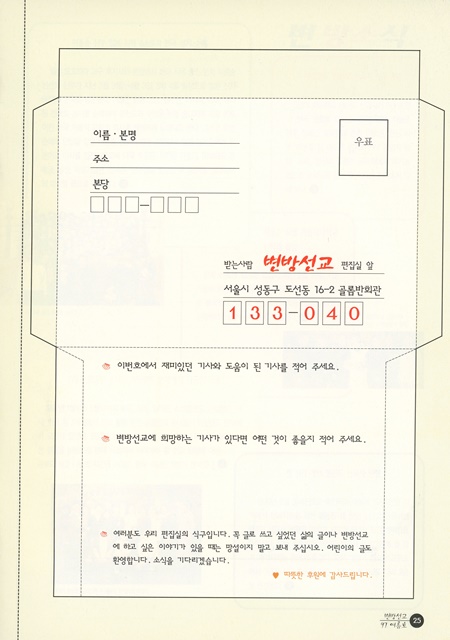 이름 · 본명
우표
주소
본당
받는사람 변방선교 편집실 앞
서울시 성동구 도선동 16-2 골롬반회관
133-040
이번호에서 재미있던 기사와 도움이 된 기사를 적어 주세요.
변방선교에 희망하는 기사가 있다면 어떤 것이 좋을지 적어 주세요.
여러분도 우리 편집실의 식구입니다. 꼭 글로 쓰고 싶었던 삶의 글이나 변방선교
에 하고 싶은 이야기가 있을 때는 망설이지 말고 보내 주십시오. 어린이의 글도
환영합니다. 소식을 기다리겠습니다.
♥ 따뜻한 후원에 감사드립니다.
변방선교
97 여름호
25